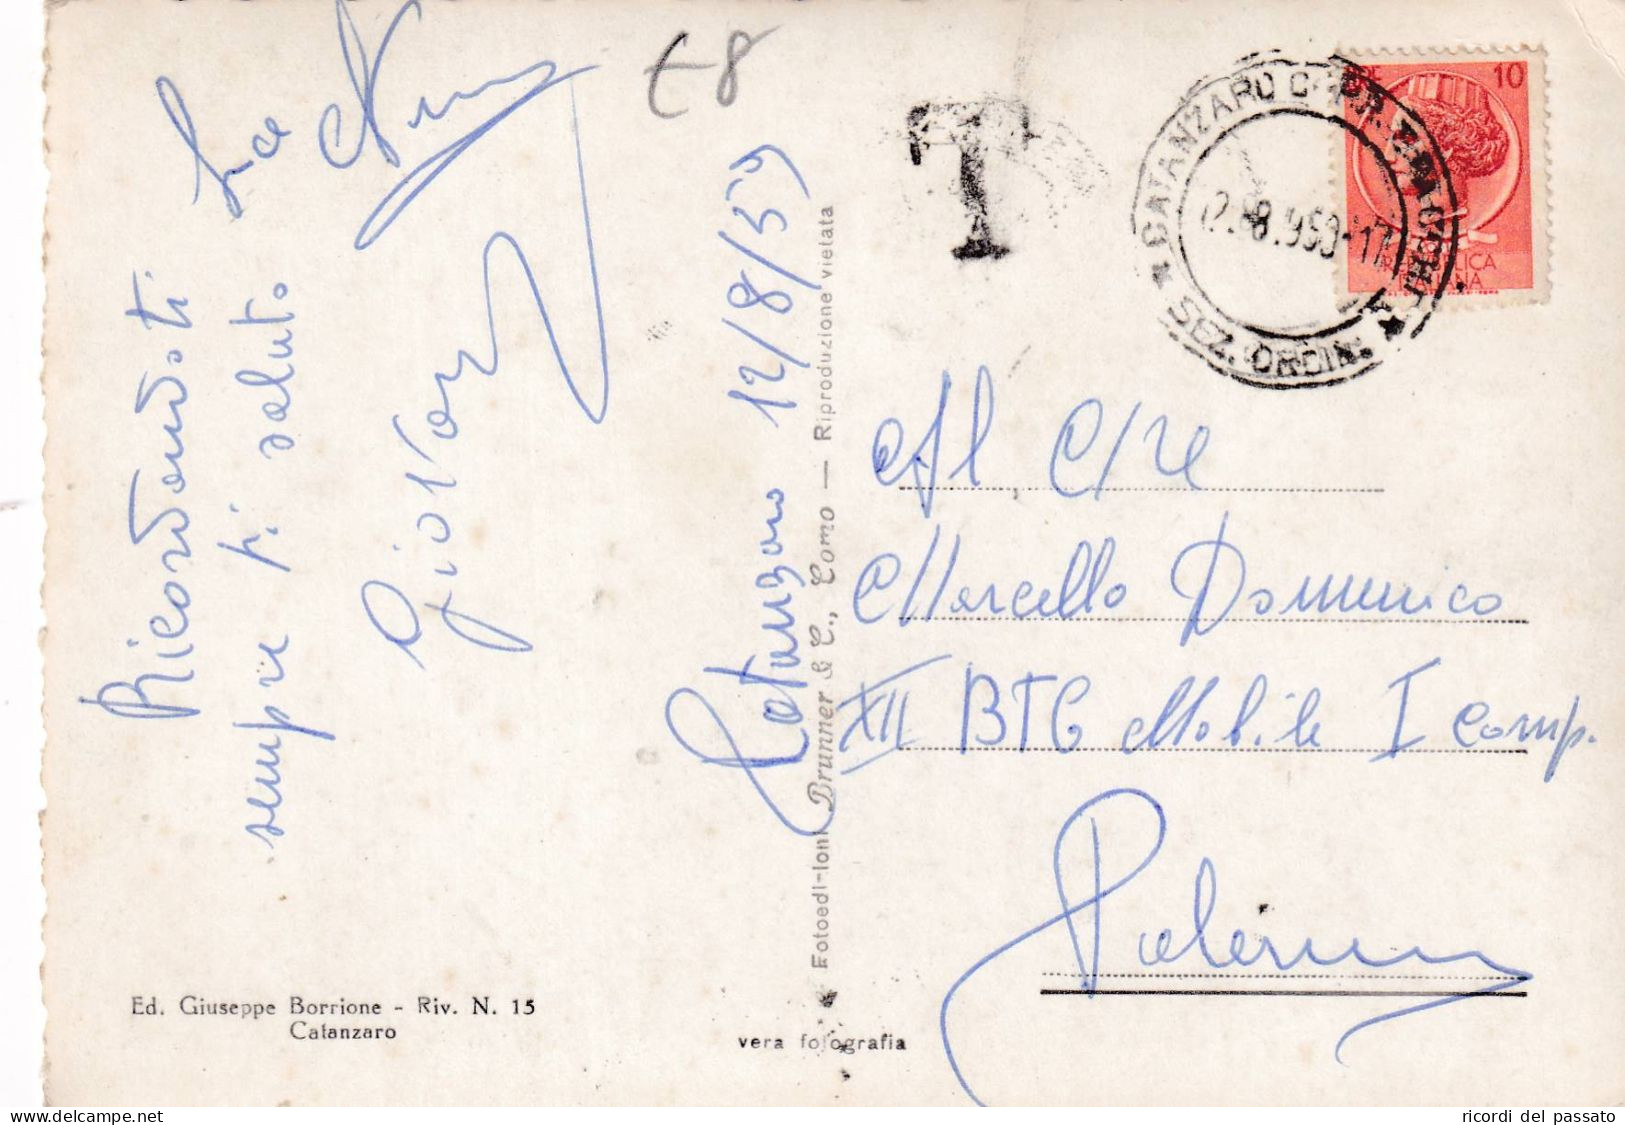 Ricordandoti
sempre ti saluto
Giovanni
Catanzaro 12/8/59
Ed. Giuseppe Borrione - Riv. N. 15
Catanzaro
Fotoedizioni Brunner & C., Como — Riproduzione vietata
vera fotografia
£8
T
CATANZARO
SEZ. ORDIN.
12.8.959-17
10
REPUBBLICA
ITALIANA
Al C/re
Marcello Domenico
XII BTG Mobile I Comp.
Palermo
ricordi del passato